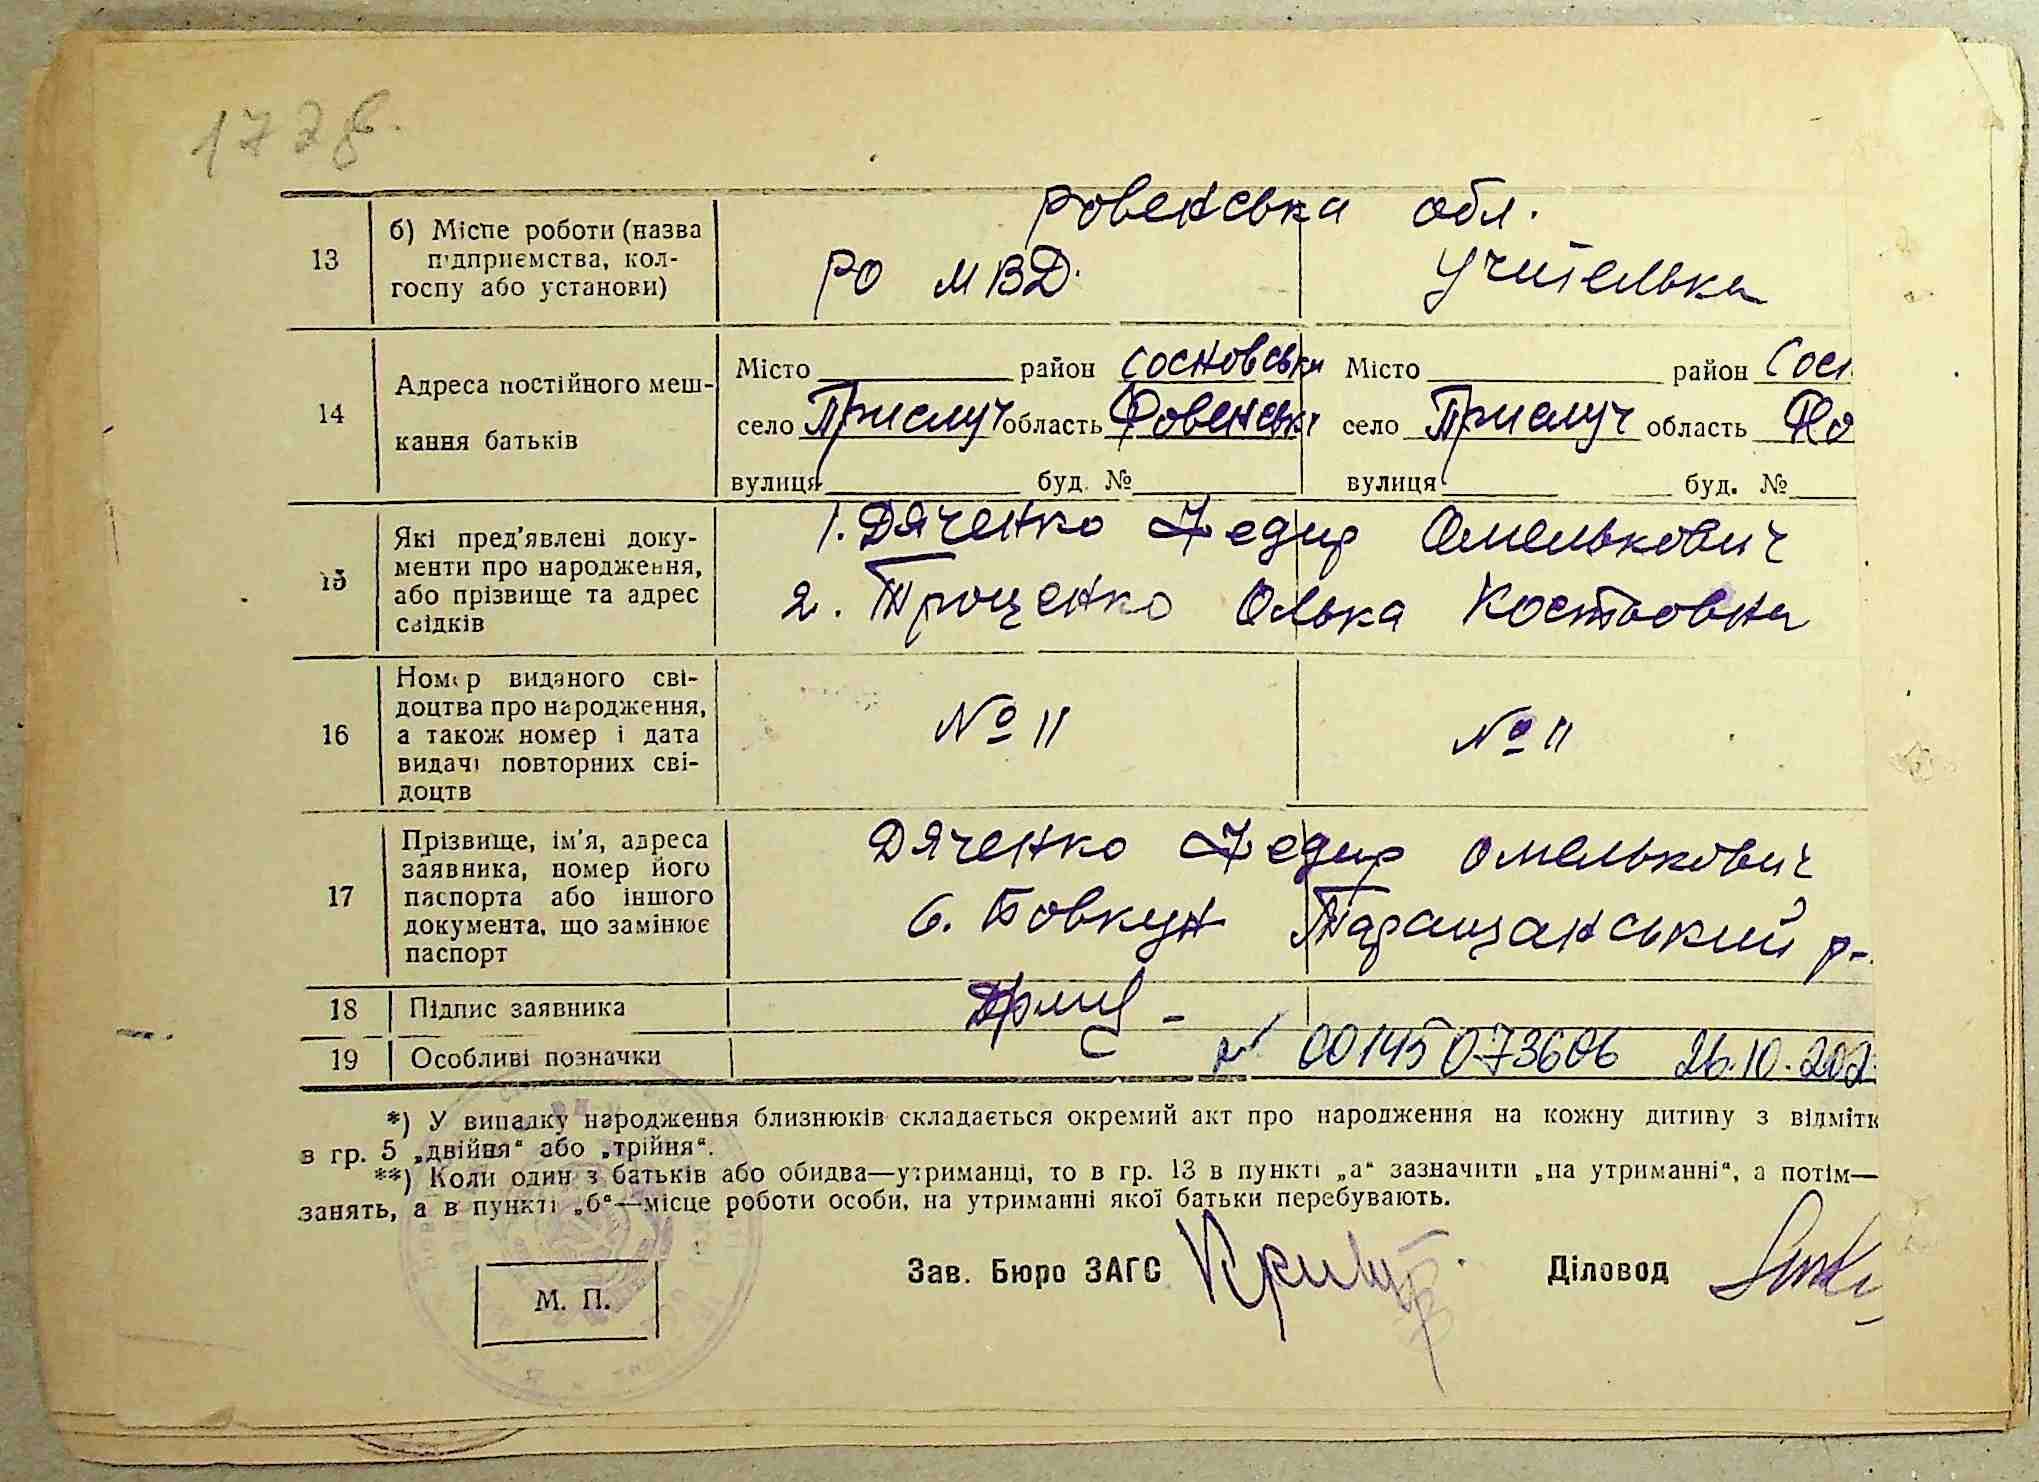 177
ровенська обл.
13 б) Місце роботи (назва підприємства, колгоспу або установи) РО МВД. Учителька
14 Адреса постійного меш-
кання батьків
Місто район Сосновськи Місто район Сосн
село Прислуч область Ровенськ село Прислуч область Ро
вулиця буд. № вулиця буд. №
15 Які пред'явлені доку-
менти про народження,
або прізвище та адрес
свідків
1. Дяченко Федир Омелькович
2. Троценко Олька Костьовна
16 Номер виданого сві-
доцтва про народження,
а також номер і дата
видачі повторних сві-
доцтв
№ 11 № 11
17 Прізвище, ім'я, адреса
заявника, номер його
паспорта або іншого
документа, що замінює
паспорт
Дяченко Федир Омелькович
с. Бовкун Таращанський р-
18 Підпис заявника
19 Особливі позначки № 00145073606 26.10.202
*) У випадку народження близнюків складається окремий акт про народження на кожну дитину з відмітк
в гр. 5 „двійня“ або „трійня“.
**) Коли один з батьків або обидва—утриманці, то в гр. 13 в пункті „а“ зазначити „на утриманні“, а потім—
занять, а в пункті „б“—місце роботи особи, на утриманні якої батьки перебувають.
Зав. Бюро ЗАГС Діловод
М. П.